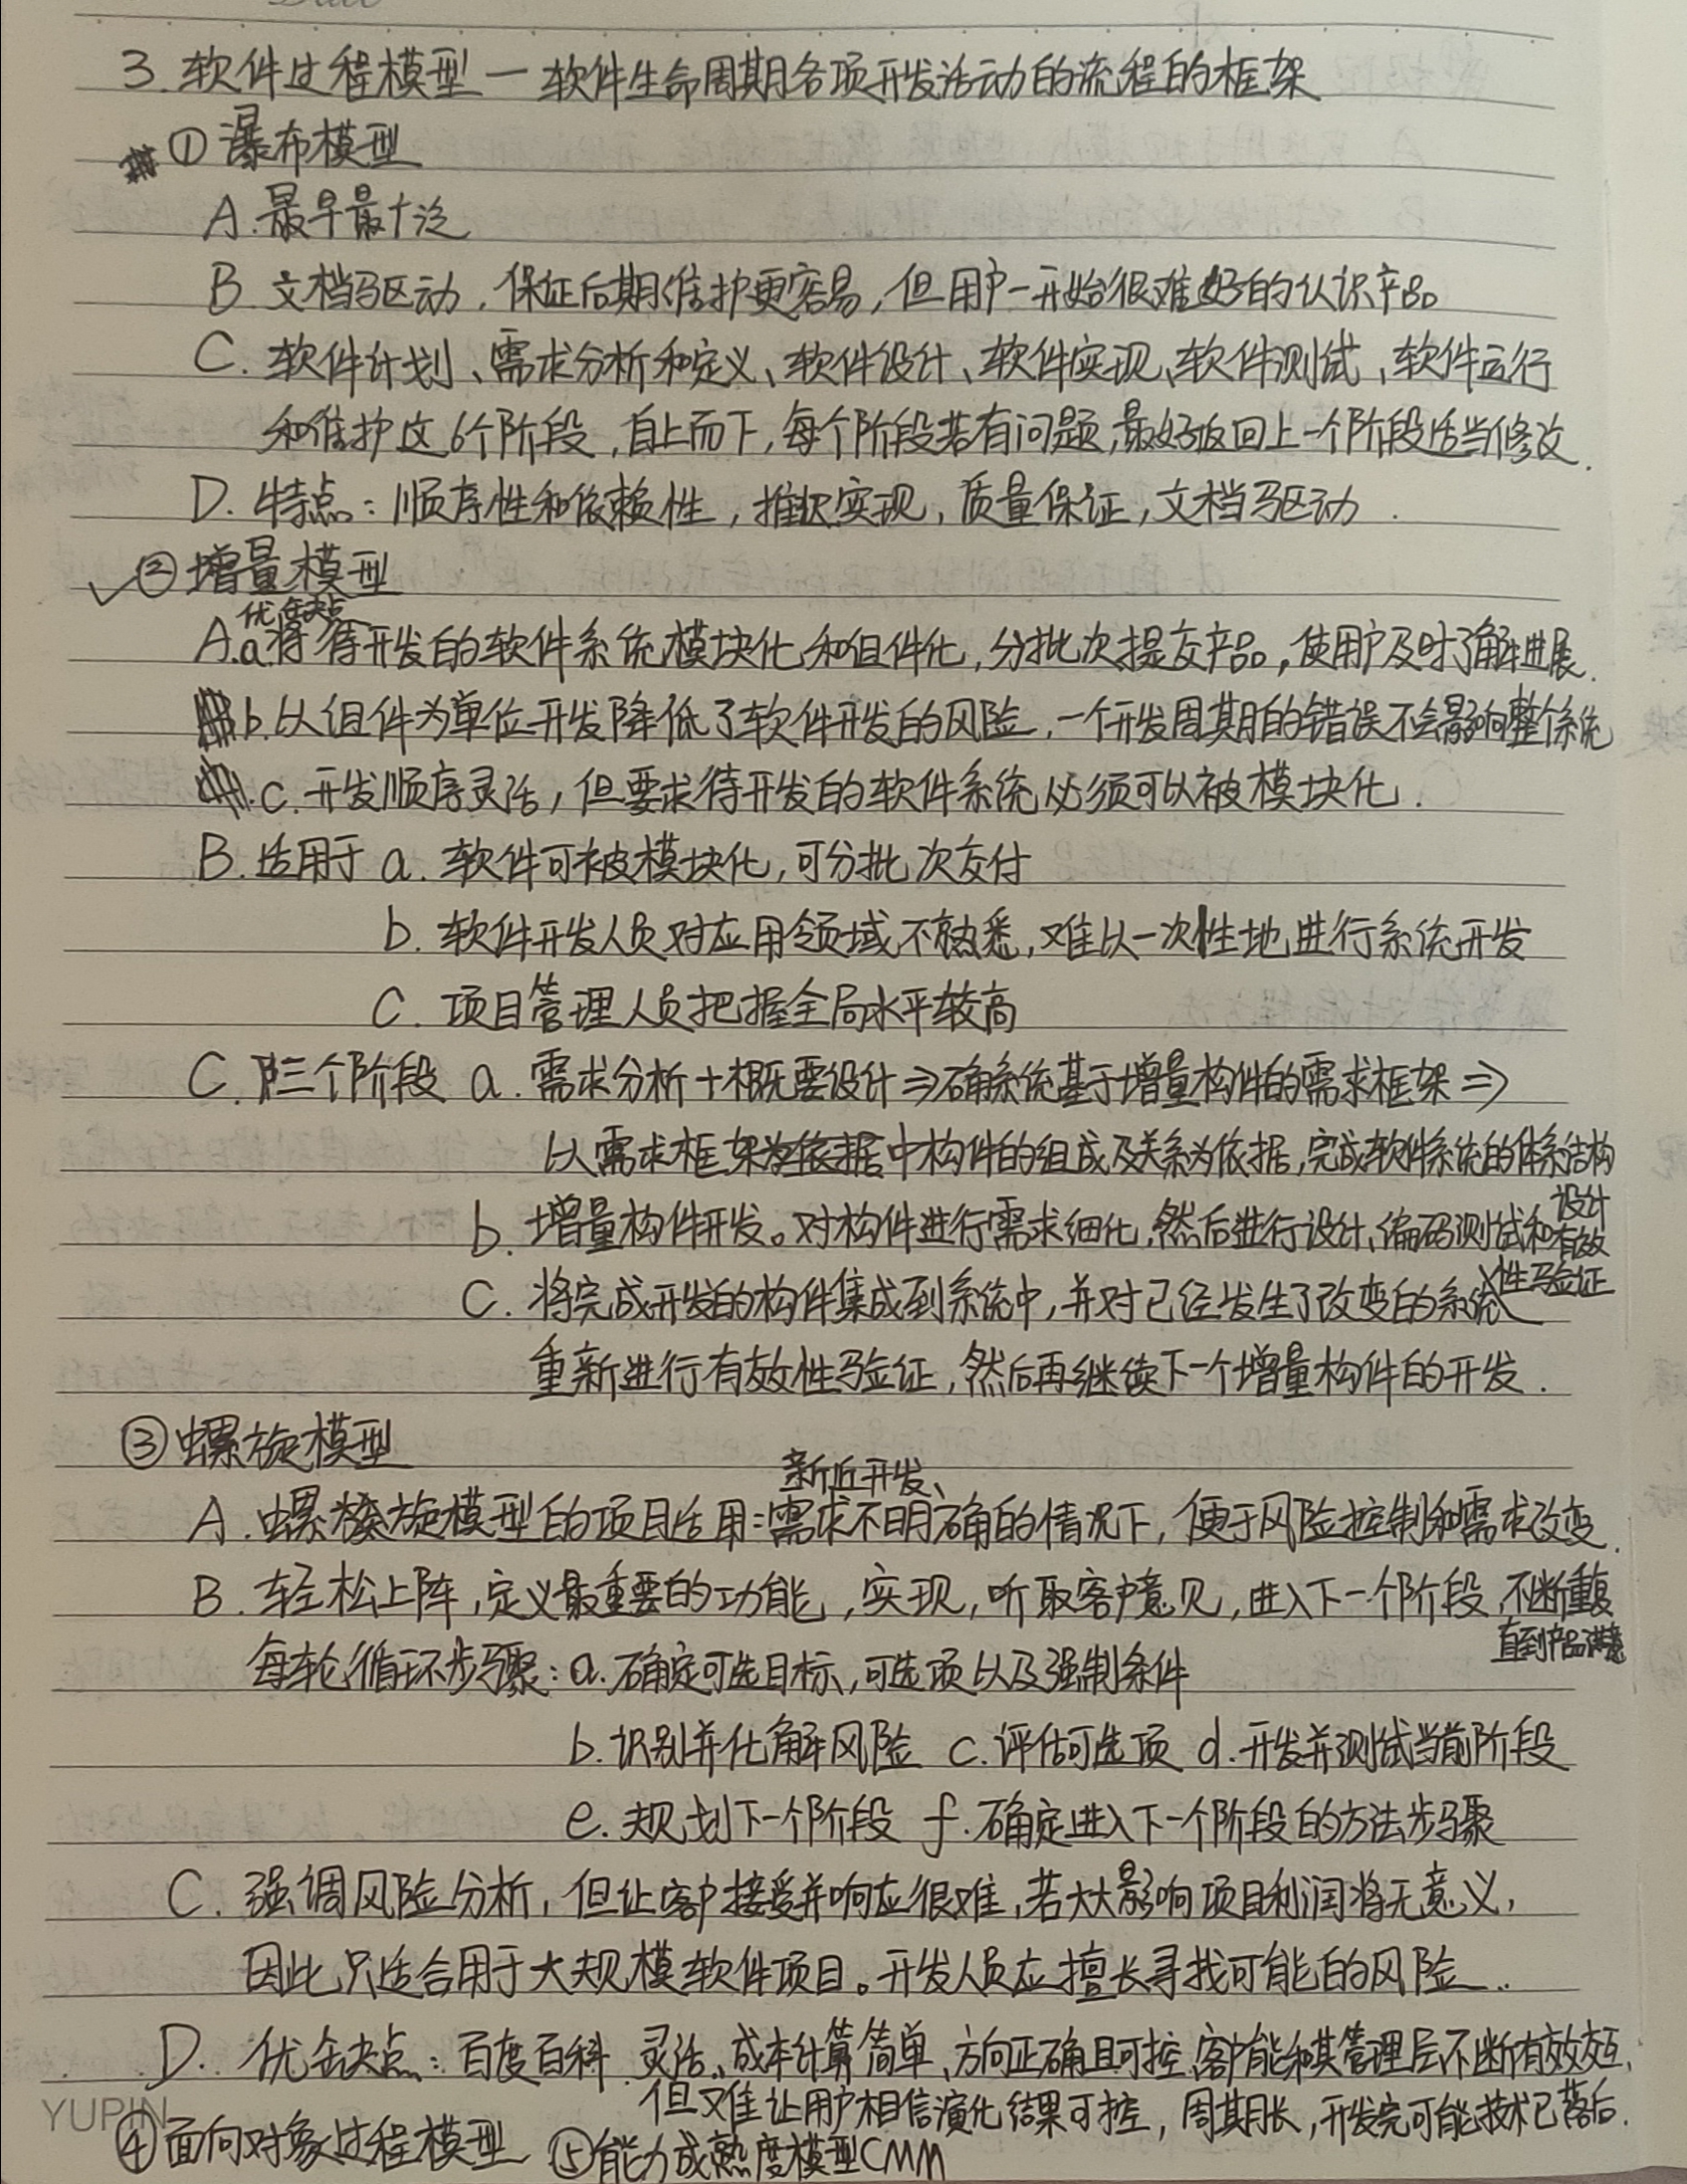 3. 软件过程模型 — 软件生命周期各项开发活动的流程的框架
① 瀑布模型
A. 最早最广泛
B. 文档驱动，保证后期维护更容易，但用户一开始很难好的认识产品
C. 软件计划、需求分析和定义、软件设计、软件实现、软件测试、软件运行
和维护这6个阶段，自上而下，每个阶段若有问题，最好返回上一个阶段适当修改.
D. 特点：顺序性和依赖性，推迟实现，质量保证，文档驱动.
② 增量模型
优缺点
A. a. 将待开发的软件系统模块化和组件化，分批次提交产品，使用户及时了解进展.
b. 以组件为单位开发降低了软件开发的风险，一个开发周期的错误不会影响整个系统
c. 开发顺序灵活，但要求待开发的软件系统必须可以被模块化.
B. 适用于 a. 软件可被模块化，可分批次交付
b. 软件开发人员对应用领域不熟悉，难以一次性地进行系统开发
C. 项目管理人员把握全局水平较高
C. 三个阶段 a. 需求分析+概要设计⇒确系统基于增量构件的需求框架⇒
以需求框架中构件的组成及关系为依据，完成软件系统的体系结构
设计
b. 增量构件开发。对构件进行需求细化，然后进行设计、编码测试和有效
性验证
C. 将完成开发的构件集成到系统中，并对已经发生了改变的系统
重新进行有效性验证，然后再继续下一个增量构件的开发.
③ 螺旋模型
新近开发、
A. 螺旋模型的项目适用：需求不明确的情况下，便于风险控制和需求改变.
B. 轻松上阵，定义最重要的功能，实现，听取客户意见，进入下一个阶段，不断重复
直到产品满意
每轮循环步骤：a. 确定可选目标，可选项以及强制条件
b. 识别并化解风险 c. 评估可选项 d. 开发并测试当前阶段
e. 规划下一个阶段 f. 确定进入下一个阶段的方法步骤
C. 强调风险分析，但让客户接受并响应很难，若大大影响项目利润将无意义，
因此只适合用于大规模软件项目。开发人员应擅长寻找可能的风险..
D. 优缺点：百度百科 灵活、成本计算简单、方向正确且可控、客户能和其管理层不断有效交互，
但又难让用户相信演化结果可控，周期长，开发完可能技术已落后.
YUPIN
④ 面向对象过程模型 ⑤ 能力成熟度模型CMM